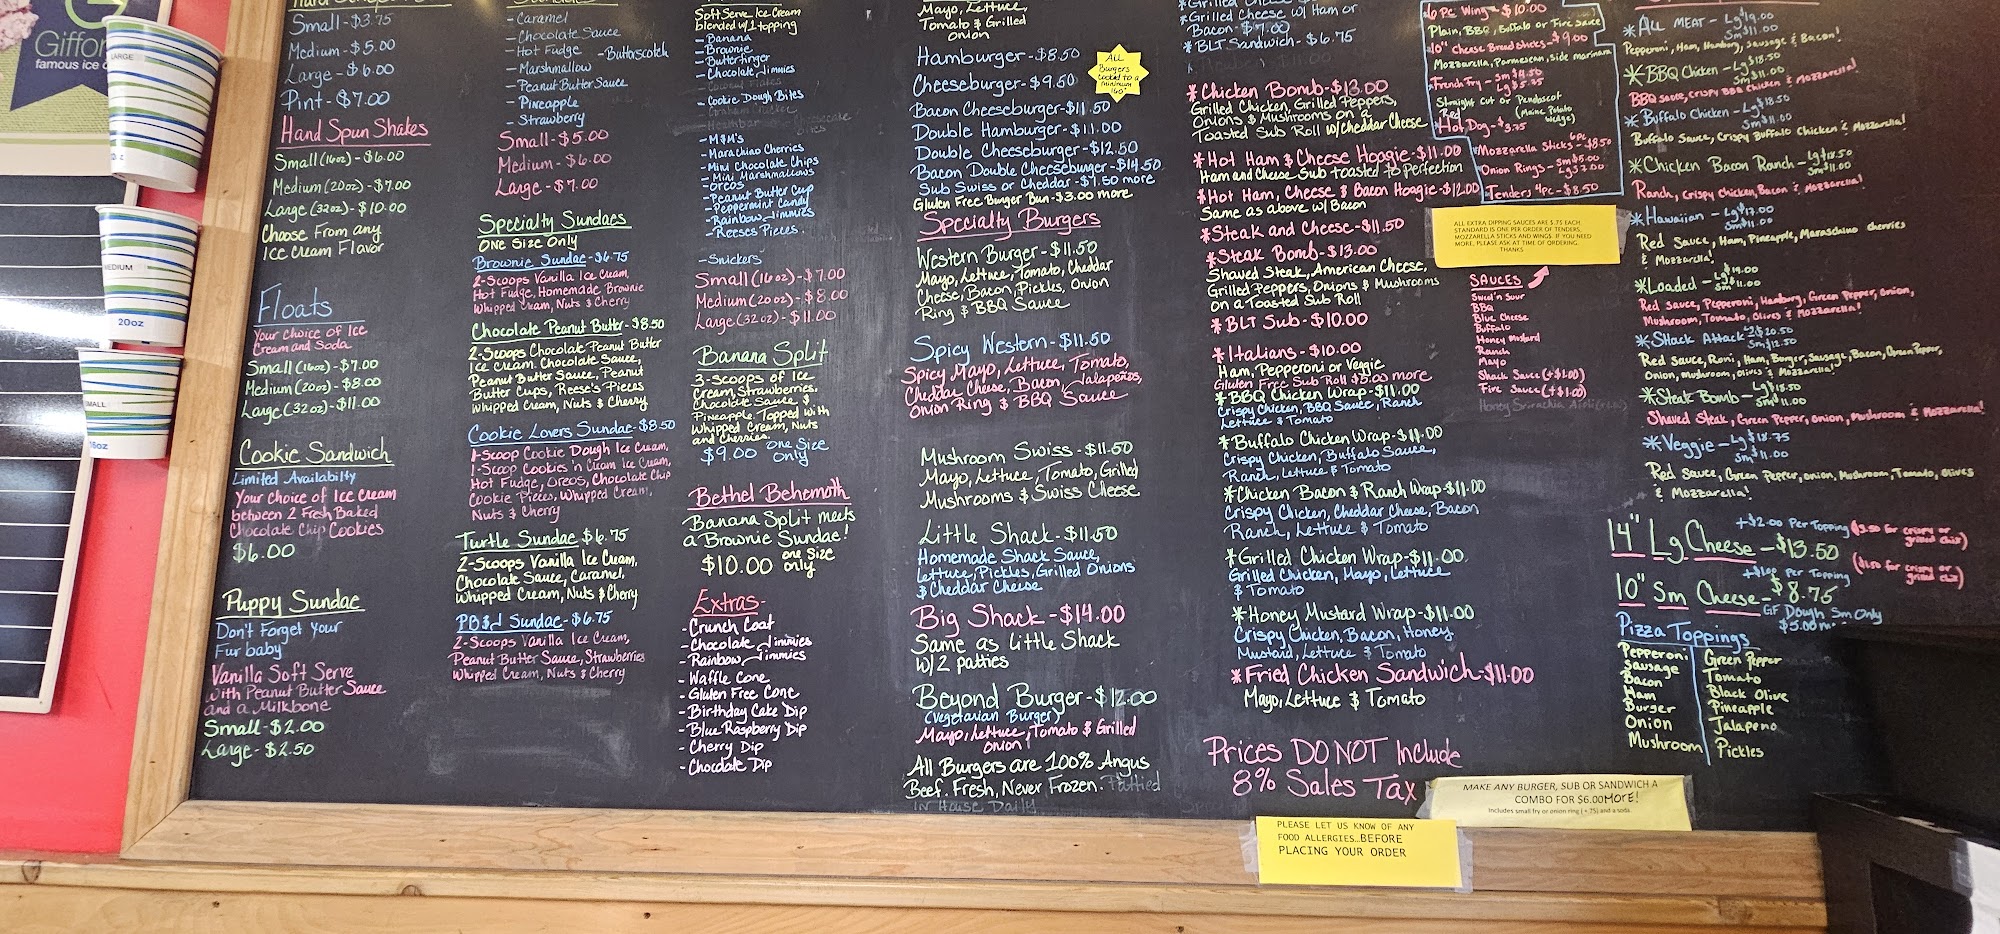 Giffor
famous ice c
LARGE
MEDIUM
20oz
SMALL
16oz
Small - $3.75
Medium - $5.00
Large - $6.00
Pint - $7.00
Hand Spun Shakes
Small (16oz) - $6.00
Medium (20oz) - $7.00
Large (32oz) - $10.00
Choose From any
Ice Cream Flavor
Floats
Your Choice of Ice
Cream and Soda
Small (16oz) - $7.00
Medium (20oz) - $8.00
Large (32oz) - $11.00
Cookie Sandwich
Limited Availability
Your Choice of Ice Cream
between 2 Fresh Baked
Chocolate Chip Cookies
$6.00
Puppy Sundae
Don't Forget Your
Fur baby
Vanilla Soft Serve
with Peanut Butter Sauce
and a Milkbone
Small - $2.00
Large - $2.50
- Caramel
- Chocolate Sauce
- Hot Fudge - Butterscotch
- Marshmallow
- Peanut Butter Sauce
- Pineapple
- Strawberry
Small - $5.00
Medium - $6.00
Large - $7.00
Specialty Sundaes
One Size Only
Brownie Sundae - $6.75
2-Scoops Vanilla Ice Cream,
Hot Fudge, Homemade Brownie
Whipped Cream, Nuts & Cherry
Chocolate Peanut Butter - $8.50
2-Scoops Chocolate Peanut Butter
Ice Cream, Chocolate Sauce,
Peanut Butter Sauce, Peanut
Butter Cups, Reese's Pieces
Whipped Cream, Nuts & Cherry
Cookie Lovers Sundae - $8.50
1-Scoop Cookie Dough Ice Cream,
1-Scoop Cookies n Cream Ice Cream,
Hot Fudge, Oreos, Chocolate Chip
Cookie Pieces, Whipped Cream,
Nuts & Cherry
Turtle Sundae $6.75
2-Scoops Vanilla Ice Cream,
Chocolate Sauce, Caramel,
Whipped Cream, Nuts & Cherry
PB&J Sundae - $6.75
2-Scoops Vanilla Ice Cream,
Peanut Butter Sauce, Strawberries
Whipped Cream, Nuts & Cherry
Soft Serve Ice Cream
blended w/1 topping
- Banana
- Brownie
- Butterfinger
- Chocolate Jimmies
- Cookie Dough Bites
- M&M's
- Marachiao Cherries
- Mini Chocolate Chips
- Mini Marshmallows
- Oreos
- Peanut Butter Cup
- Peppermint Candy
- Rainbow Jimmies
- Reeses Pieces
- Snickers
Small (16oz) - $7.00
Medium (20oz) - $8.00
Large (32oz) - $11.00
Banana Split
3-Scoops of Ice
Cream, Strawberries,
Chocolate Sauce &
Pineapple. Topped with
Whipped Cream, Nuts
and Cherries.
$9.00 One Size Only
Bethel Behemoth
Banana Split meets
a Brownie Sundae!
$10.00 One Size only
Extras
- Crunch Coat
- Chocolate Jimmies
- Rainbow Jimmies
- Waffle Cone
- Gluten Free Cone
- Birthday Cake Dip
- Blue Raspberry Dip
- Cherry Dip
- Chocolate Dip
Mayo, Lettuce,
Tomato & Grilled
Onion
Hamburger - $8.50
Cheeseburger - $9.50
Bacon Cheeseburger - $11.50
Double Hamburger - $11.00
Double Cheeseburger - $12.50
Bacon Double Cheeseburger - $14.50
Sub Swiss or Cheddar - $1.50 more
Gluten Free Burger Bun - $3.00 more
All
Burgers
cooked to a
minimum
160°
Specialty Burgers
Western Burger - $11.50
Mayo, Lettuce, Tomato, Cheddar
Cheese, Bacon, Pickles, Onion
Ring & BBQ Sauce
Spicy Western - $11.50
Spicy Mayo, Lettuce, Tomato,
Cheddar Cheese, Bacon, Jalapeños,
Onion Ring & BBQ Sauce
Mushroom Swiss - $11.50
Mayo, Lettuce, Tomato, Grilled
Mushrooms & Swiss Cheese
Little Shack - $11.50
Homemade Shack Sauce,
Lettuce, Pickles, Grilled Onions
& Cheddar Cheese
Big Shack - $14.00
Same as Little Shack
w/ 2 patties
Beyond Burger - $12.00
(Vegetarian Burger)
Mayo, Lettuce, Tomato & Grilled
Onion
All Burgers are 100% Angus
Beef. Fresh, Never Frozen. Pattied
In House Daily
*Grilled Cheese w/ Ham or
Bacon - $7.00
*BLT Sandwich - $6.75
*Chicken Bomb - $13.00
Grilled Chicken, Grilled Peppers,
Onions & Mushrooms on a
Toasted Sub Roll w/Cheddar Cheese
*Hot Ham & Cheese Hoagie - $11.00
Ham and Cheese Sub toasted to perfection
*Hot Ham, Cheese & Bacon Hoagie - $12.00
Same as above w/ Bacon
*Steak and Cheese - $11.50
*Steak Bomb - $13.00
Shaved Steak, American Cheese,
Grilled Peppers, Onions & Mushrooms
on a Toasted Sub Roll
*BLT Sub - $10.00
*Italians - $10.00
Ham, Pepperoni or Veggie
Gluten Free Sub Roll $5.00 more
*BBQ Chicken Wrap - $11.00
Crispy Chicken, BBQ Sauce, Ranch
Lettuce & Tomato
*Buffalo Chicken Wrap - $11.00
Crispy Chicken, Buffalo Sauce,
Ranch, Lettuce & Tomato
*Chicken Bacon & Ranch Wrap - $11.00
Crispy Chicken, Cheddar Cheese, Bacon
Ranch, Lettuce & Tomato
*Grilled Chicken Wrap - $11.00
Grilled Chicken, Mayo, Lettuce
& Tomato
*Honey Mustard Wrap - $11.00
Crispy Chicken, Bacon, Honey
Mustard, Lettuce & Tomato
*Fried Chicken Sandwich - $11.00
Mayo, Lettuce & Tomato
Prices DO NOT Include
8% Sales Tax
6 Pc Wing - $10.00
Plain, BBQ, Buffalo or Fire Sauce
10" Cheese Bread Sticks - $9.00
Mozzarella, Parmesean, side marinara
French Fry - Sm $4.50
Lg $5.25
Straight Cut or Penobscot
(Maine Potato
Wedge)
*Red
Hot Dog - $3.75
Mozzarella Sticks - 6pc $8.50
Onion Rings - Sm $5.00
Tenders 4pc - $8.50
ALL EXTRA DIPPING SAUCES ARE $.75 EACH.
STANDARD IS ONE PER ORDER OF TENDERS,
MOZZARELLA STICKS AND WINGS. IF YOU NEED
MORE, PLEASE ASK AT TIME OF ORDERING.
THANKS
SAUCES
Sweet n Sour
BBQ
Blue Cheese
Buffalo
Honey Mustard
Ranch
Mayo
Shack Sauce (+$1.00)
Fire Sauce (+$1.00)
*All Meat - Lg $19.00
Sm $11.00
Pepperoni, Ham, Hamburg, Sausage & Bacon!
*BBQ Chicken - Lg $18.50
Sm $11.00
BBQ Sauce, Crispy BBQ Chicken & Mozzarella!
*Buffalo Chicken - Lg $18.50
Sm $11.00
Buffalo Sauce, Crispy Buffalo Chicken & Mozzarella!
*Chicken Bacon Ranch - Lg $18.50
Sm $11.00
Ranch, Crispy Chicken, Bacon & Mozzarella!
*Hawaiian - Lg $17.00
Sm $11.00
Red Sauce, Ham, Pineapple, Maraschino Cherries
& Mozzarella!
*Loaded - Lg $19.00
Sm $11.00
Red Sauce, Pepperoni, Hamburg, Green Pepper, Onion,
Mushroom, Tomato, Olives & Mozzarella!
*Shack Attack - Lg $20.50
Sm $12.50
Red Sauce, Roni, Ham, Burger, Sausage, Bacon, Green Pepper,
Onion, Mushroom, Olives & Mozzarella!
*Steak Bomb - Lg $18.50
Sm $11.00
Shaved Steak, Green Pepper, Onion, Mushroom & Mozzarella!
*Veggie - Lg $18.75
Sm $11.00
Red Sauce, Green Pepper, Onion, Mushroom, Tomato, Olives
& Mozzarella!
14" Lg Cheese - $13.50
+$2.00 Per Topping ($3.50 for crispy or grilled chix)
10" Sm Cheese - $8.75
+$1.00 Per Topping ($1.50 for crispy or grilled chix)
GF Dough Sm Only
$5.00
Pizza Toppings
Pepperoni
Sausage
Bacon
Ham
Burger
Onion
Mushroom
Green Pepper
Tomato
Black Olive
Pineapple
Jalapeno
Pickles
MAKE ANY BURGER, SUB OR SANDWICH A
COMBO FOR $6.00 MORE!
Includes small fry or onion ring (+.75) and a soda
PLEASE LET US KNOW OF ANY
FOOD ALLERGIES...BEFORE
PLACING YOUR ORDER